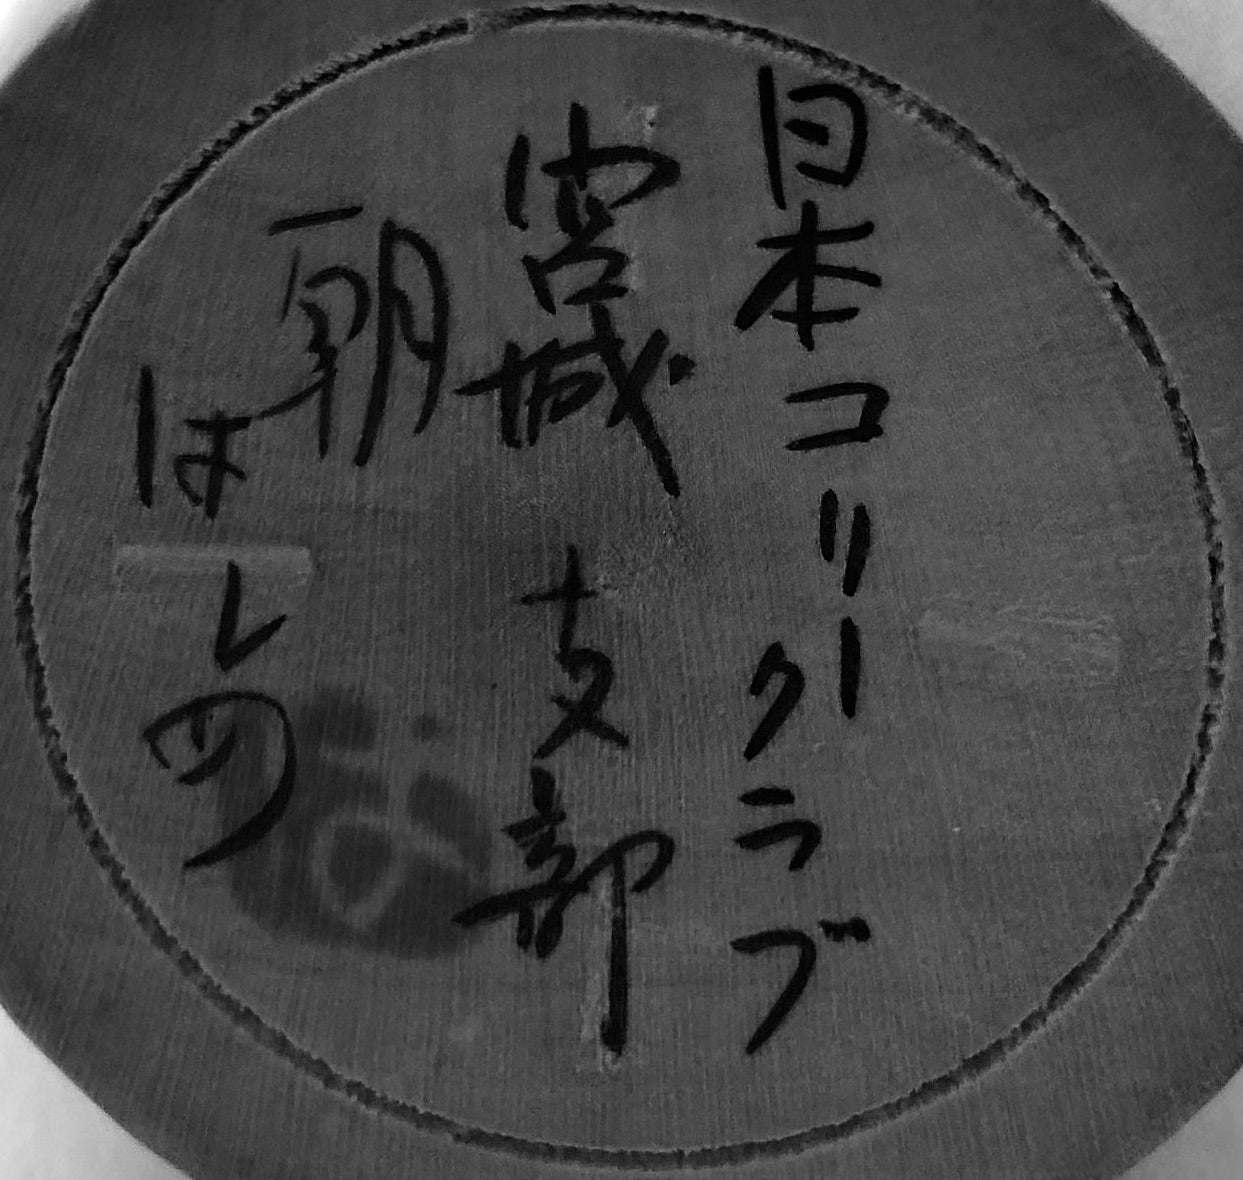 日本コリークラブ
宮城支部
朝
はしめ